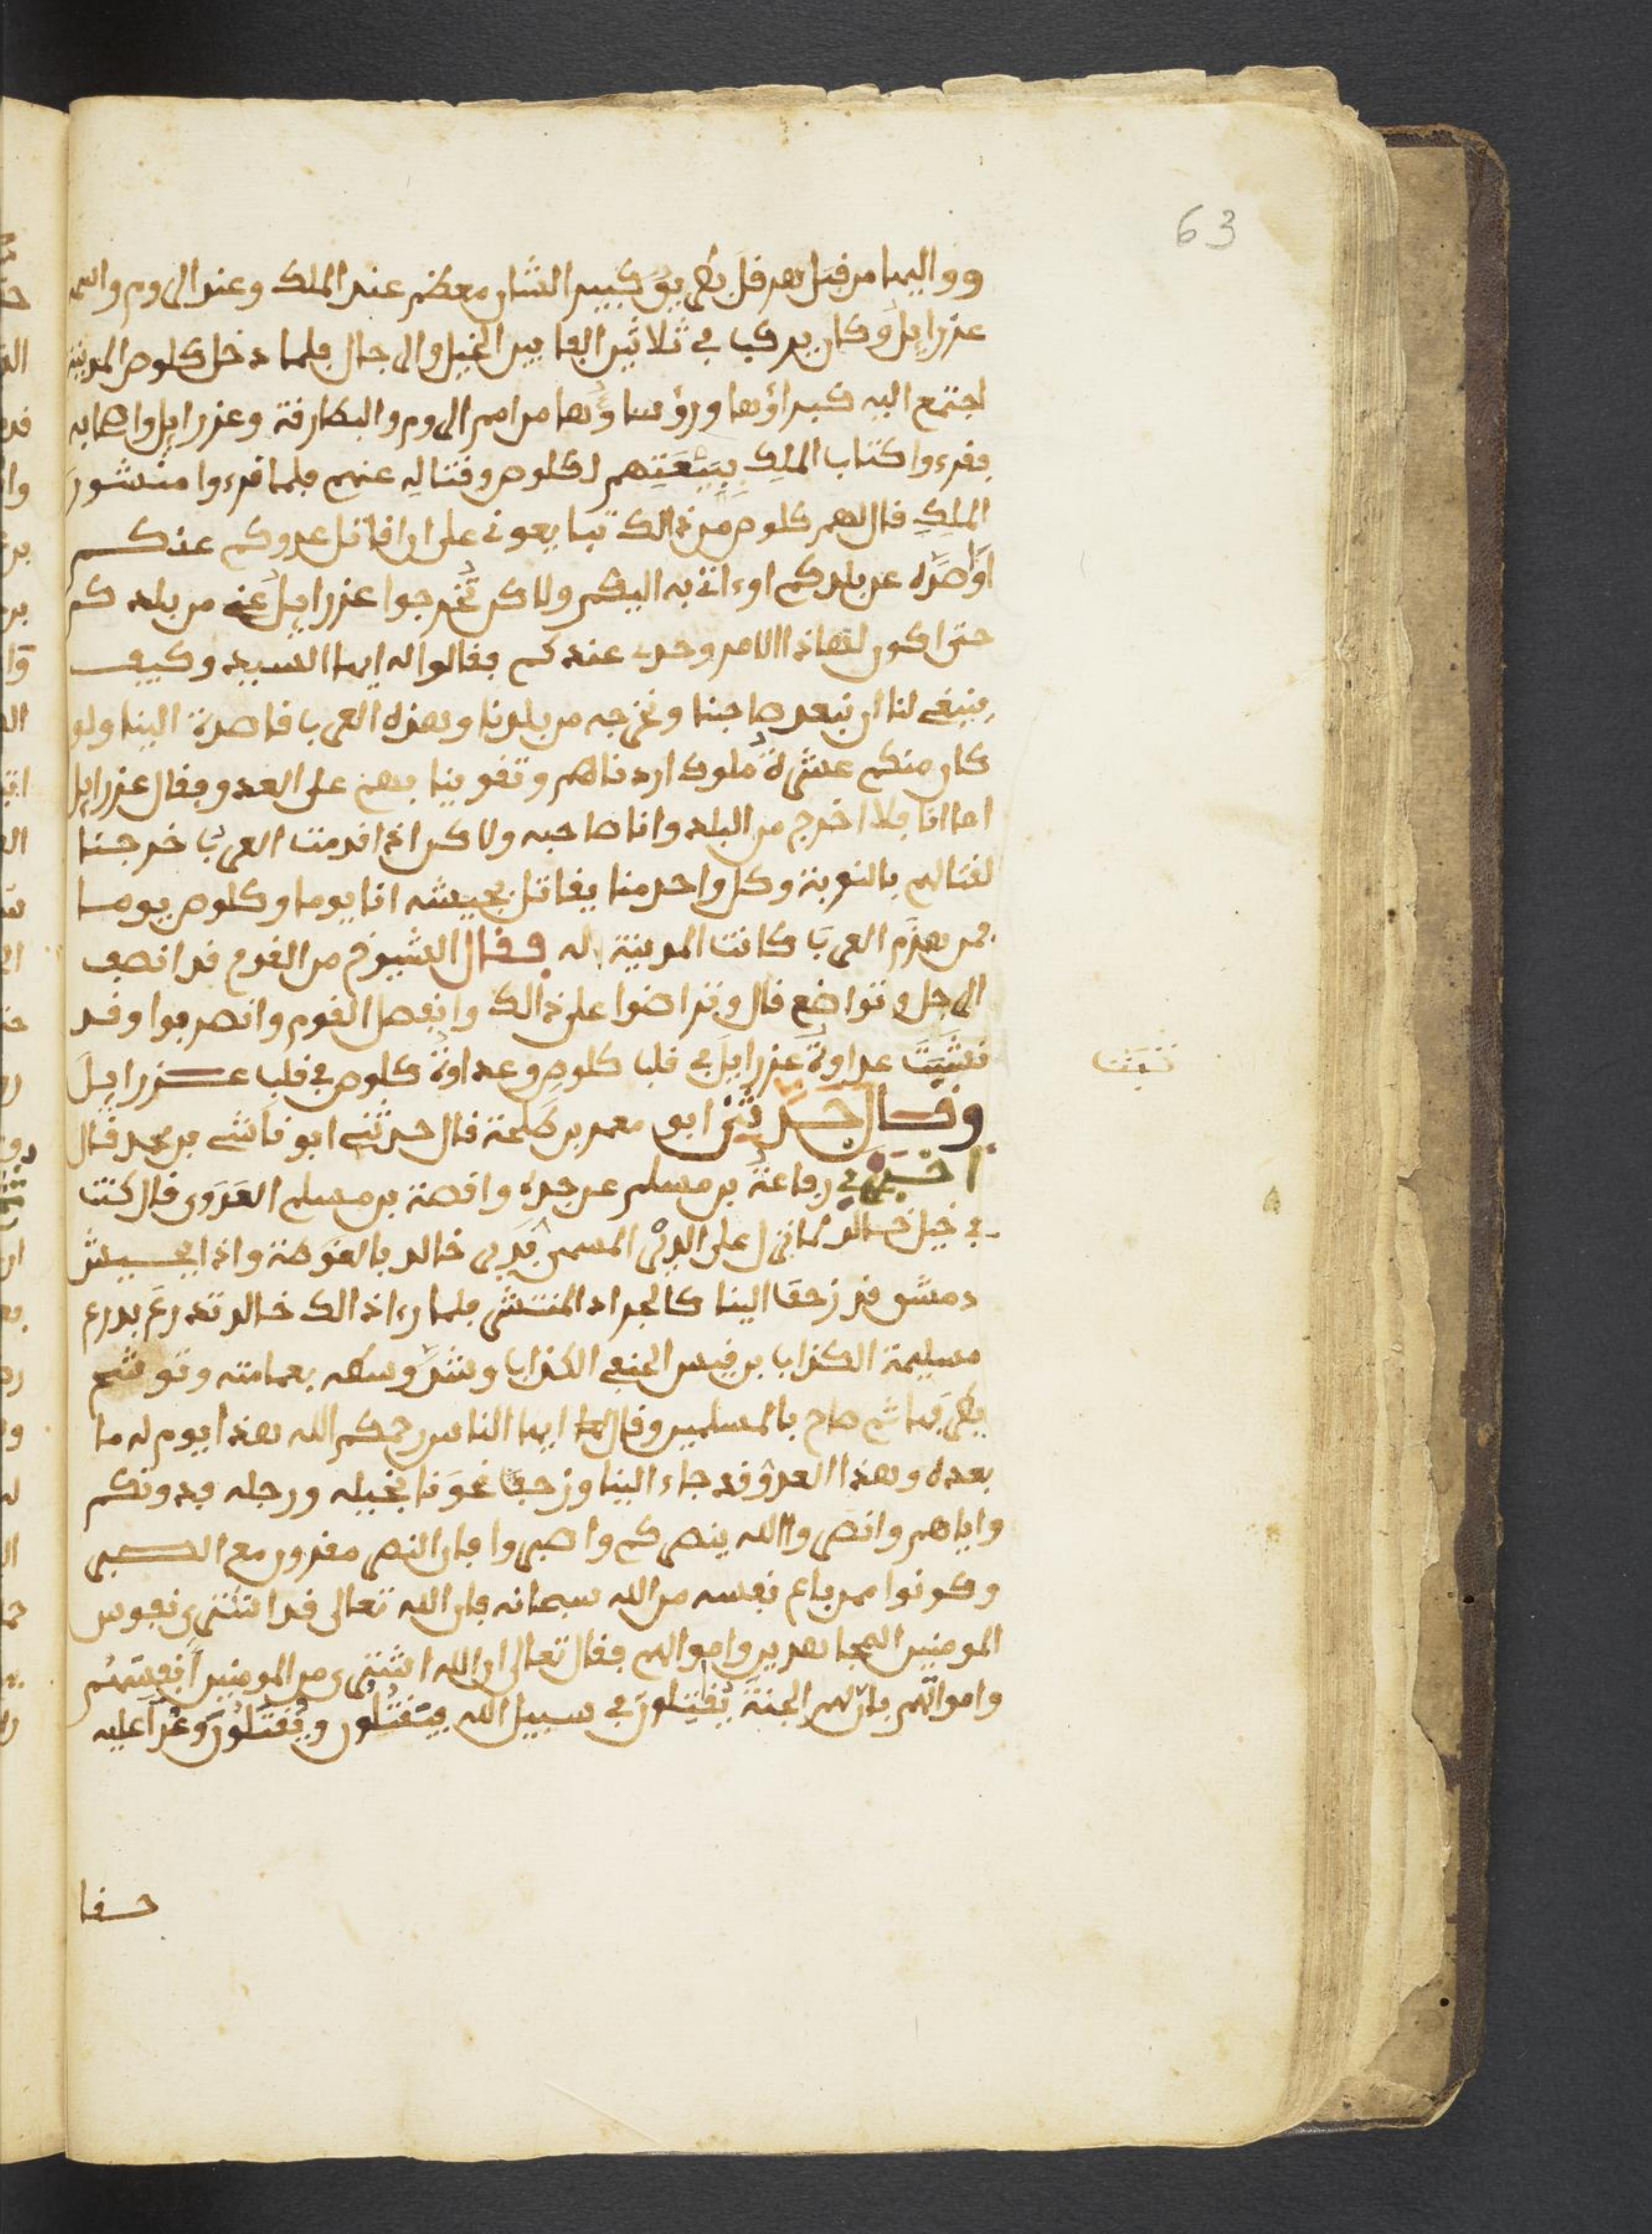 63
وواليها من قبل هرقل بطريق كبير الشان معظم عند الملك وعند الروم واسمه
عزرايل وكان يركب في ثلاثين الفا بين الخيل والرجال فلما دخل كلوص المدينة
اجتمع اليه كبراؤها ورؤساؤها من امم الروم والبطارقة وعزرايل واصحابه
فقرءوا كتاب الملك ببيعتهم لكلوص وقتاله عنهم فلما قرءوا منشور
الملك قال لهم كلوص من ذالك تبايعوني على ان اقاتل عدوكم عنكم
او اصده عن بلدكم اوءاتي به اليكم ولاكن تخرجوا عزرايل عني من بلدكم
حتى اكون لهاذا الامر وحدي عندكم فقالوا له ايها السيد وكيف
ينبغي لنا ان نبعد صاحبنا ونخرجه من بلدنا وهذه العرب قاصدة الينا ولو
كان منكم عشرة ملوك اردناهم وتقوينا بهم على العدو فقال عزرايل
اما انا فلا اخرج من البلد وانا صاحبه ولاكن اذا قدمت العرب خرجنا
لقتالهم بالنوبة وكل واحد منا يقاتل بجيشه انا يوما وكلوص يوما
فمن هزم العرب كانت المدينة له فقال الشيوخ من القوم قد انصف
الرجل وتواضع قال وتراضوا على ذالك وانفصل القوم وانصرفوا وقد
نشبت عداوة عزرايل في قلب كلوص وعداوة كلوص في قلب عزرايل
وقال حدثني ابو معمر بن طلحة قال حدثني ابو ناشي بن محمد قال
اخبرني رفاعة بن مسلم عن جده واقصة بن مسلم العدوي قال كنت
في خيل خالد لما نزل على الدير المسمى بدير خالد بالغوطة واذا بجيش
دمشق قد زحف الينا كالجراد المنتشر فلما رءا ذالك خالد تدرع بدرع
مسيلمة الكذاب بن قيس الحنفي الكذاب وشد وسطه بعمامته وتوشح
بطرفها ثم صاح بالمسلمين وقال ايها الناس رحمكم الله هذا يوم له ما
بعده وهذا العدو قد جاء الينا وزحف نحونا بخيله ورجله فدونكم
واياهم وانصروا الله ينصركم واصبروا فان النصر مقرون مع الصبر
وكونوا ممن باع نفسه من الله سبحانه فان الله تعالى قد اشترى نفوس
المومنين المجاهدين واموالهم فقال تعالى ان الله اشترى من المومنين انفسهم
واموالهم بان لهم الجنة يقتلون في سبيل الله فيقتلون ويقتلون وعدا عليه
حقا